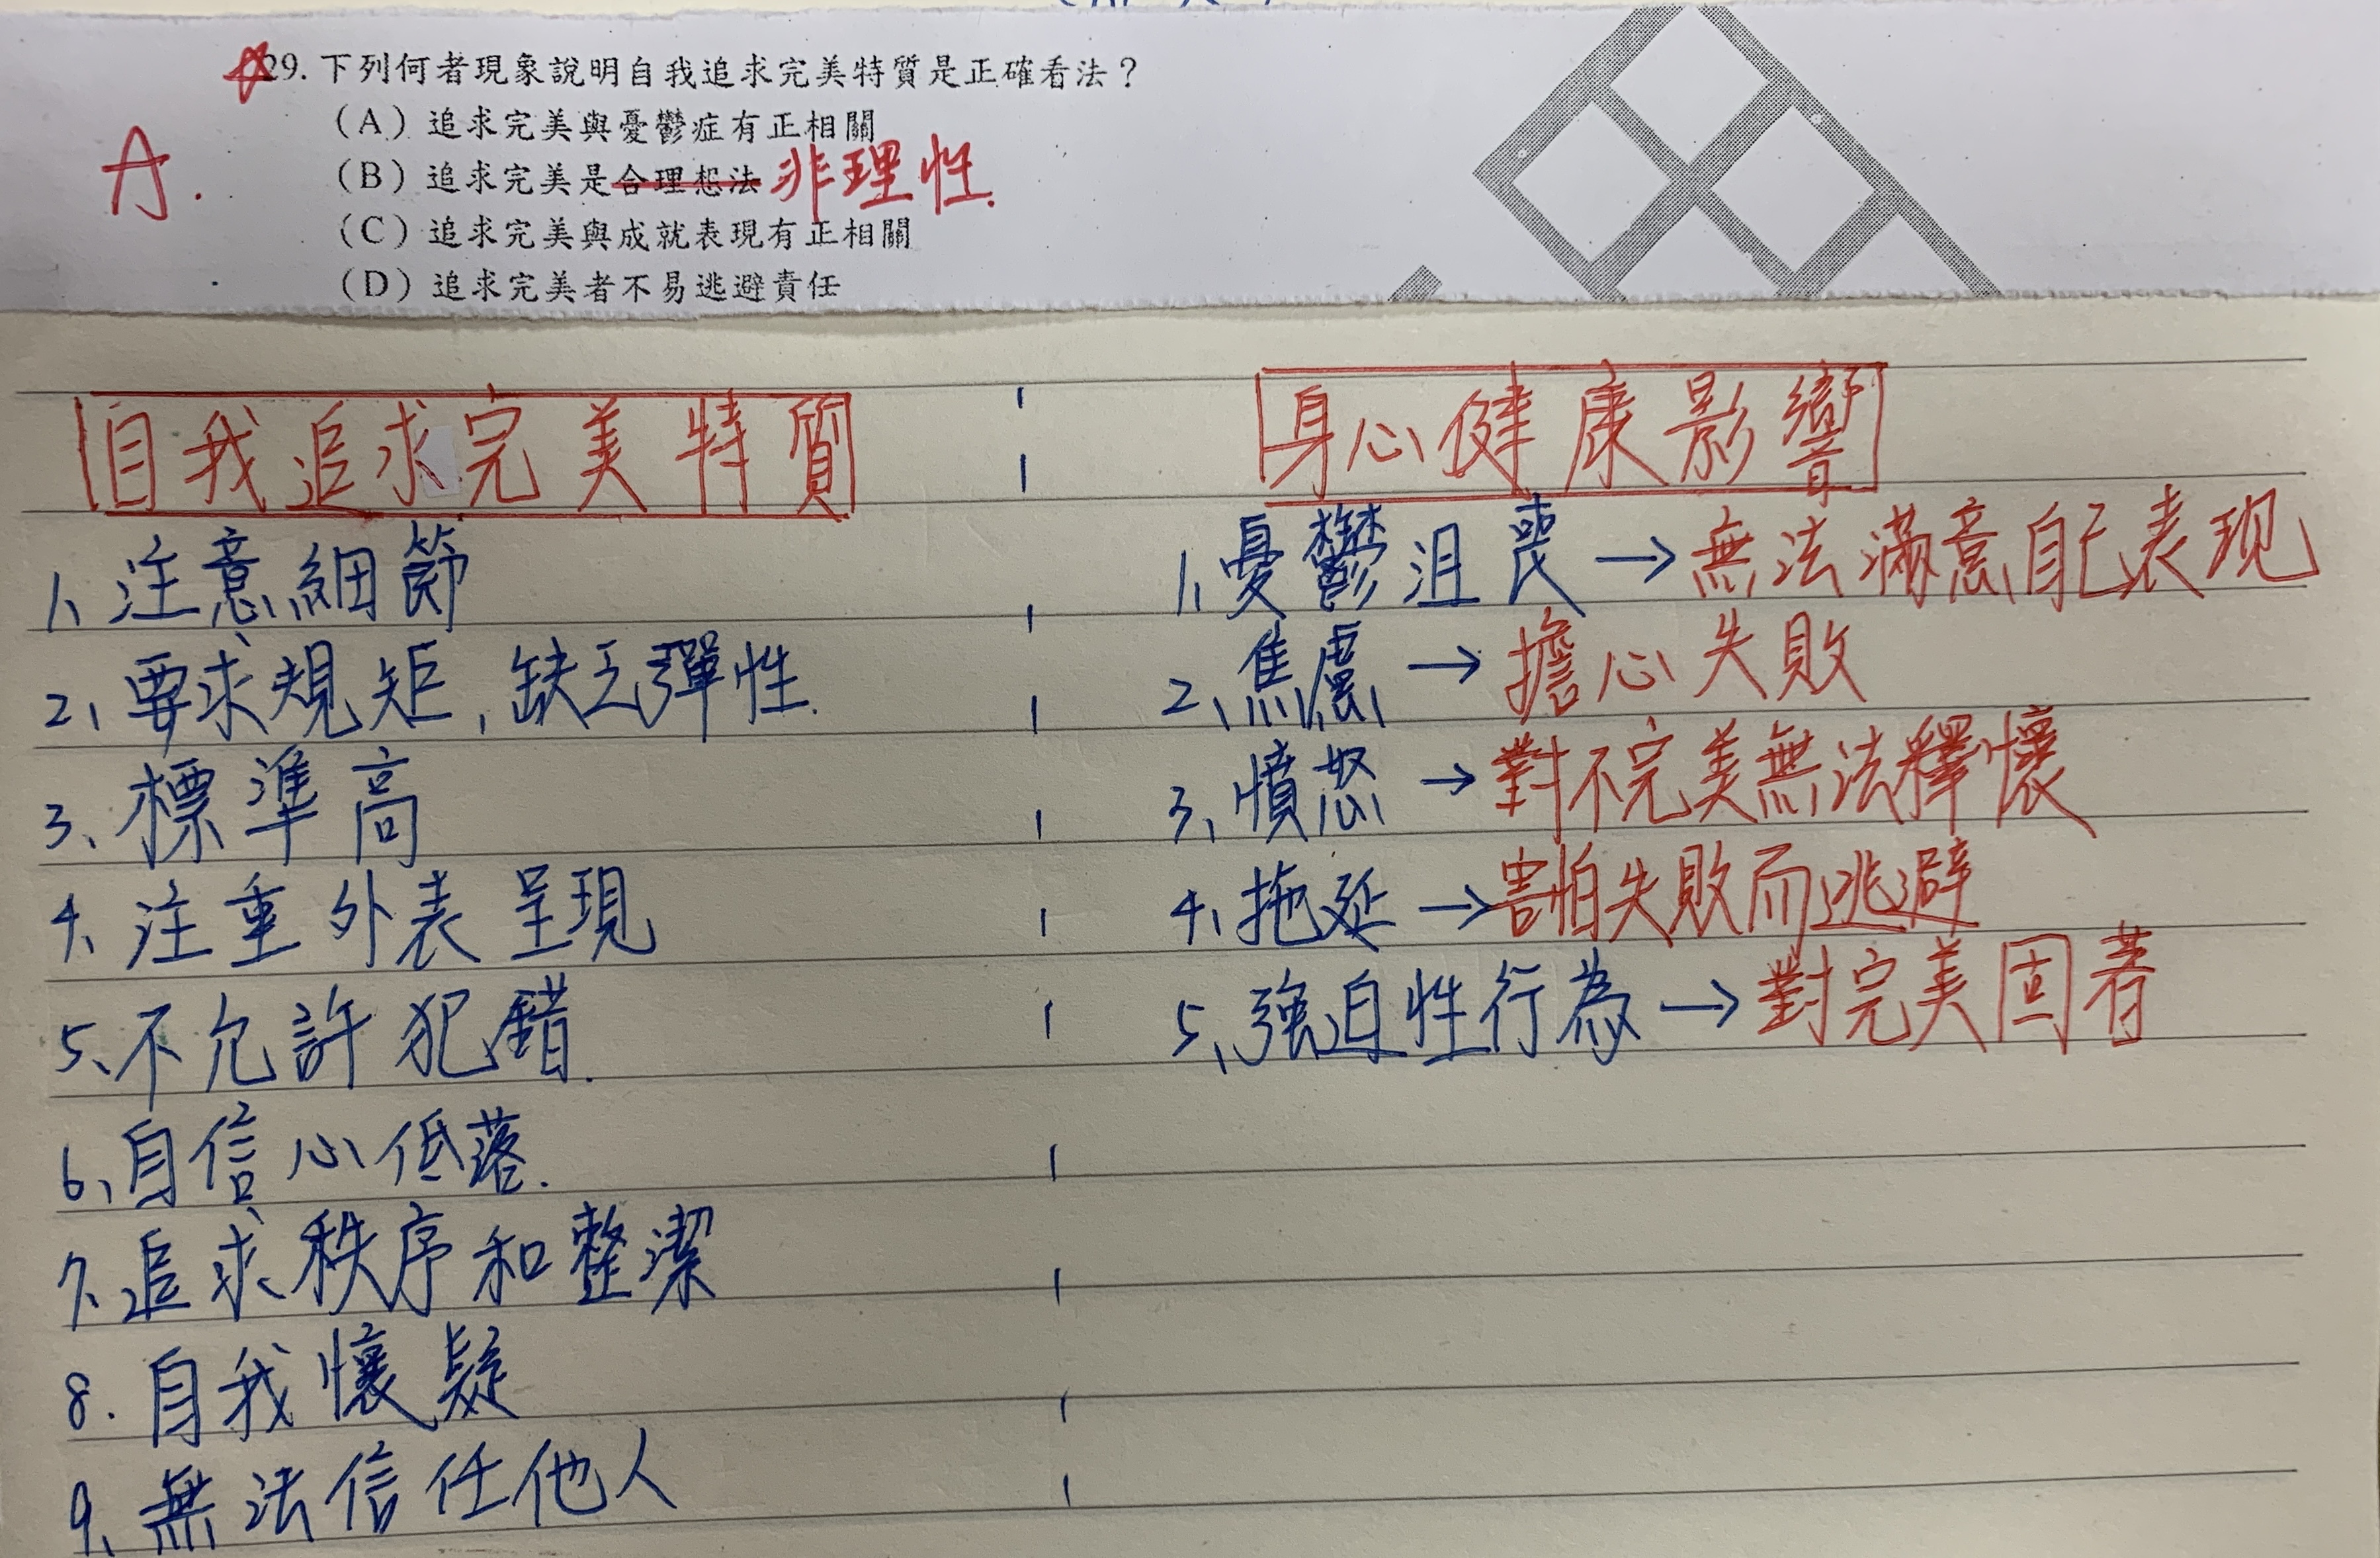 29. 下列何者現象說明自我追求完美特質是正確看法？
(A) 追求完美與憂鬱症有正相關
A.
(B) 追求完美是合理想法 非理性.
(C) 追求完美與成就表現有正相關
(D) 追求完美者不易逃避責任
自我追求完美特質
1、注意細節
2、要求規矩，缺乏彈性.
3、標準高
4、注重外表呈現
5、不允許犯錯.
6、自信心低落.
7、追求秩序和整潔
8. 自我懷疑
9、無法信任他人
身心健康影響
1、憂鬱沮喪→無法滿意自己表現
2、焦慮→擔心失敗
3、憤怒→對不完美無法釋懷
4、拖延→害怕失敗而逃避
5、強迫性行為→對完美固著